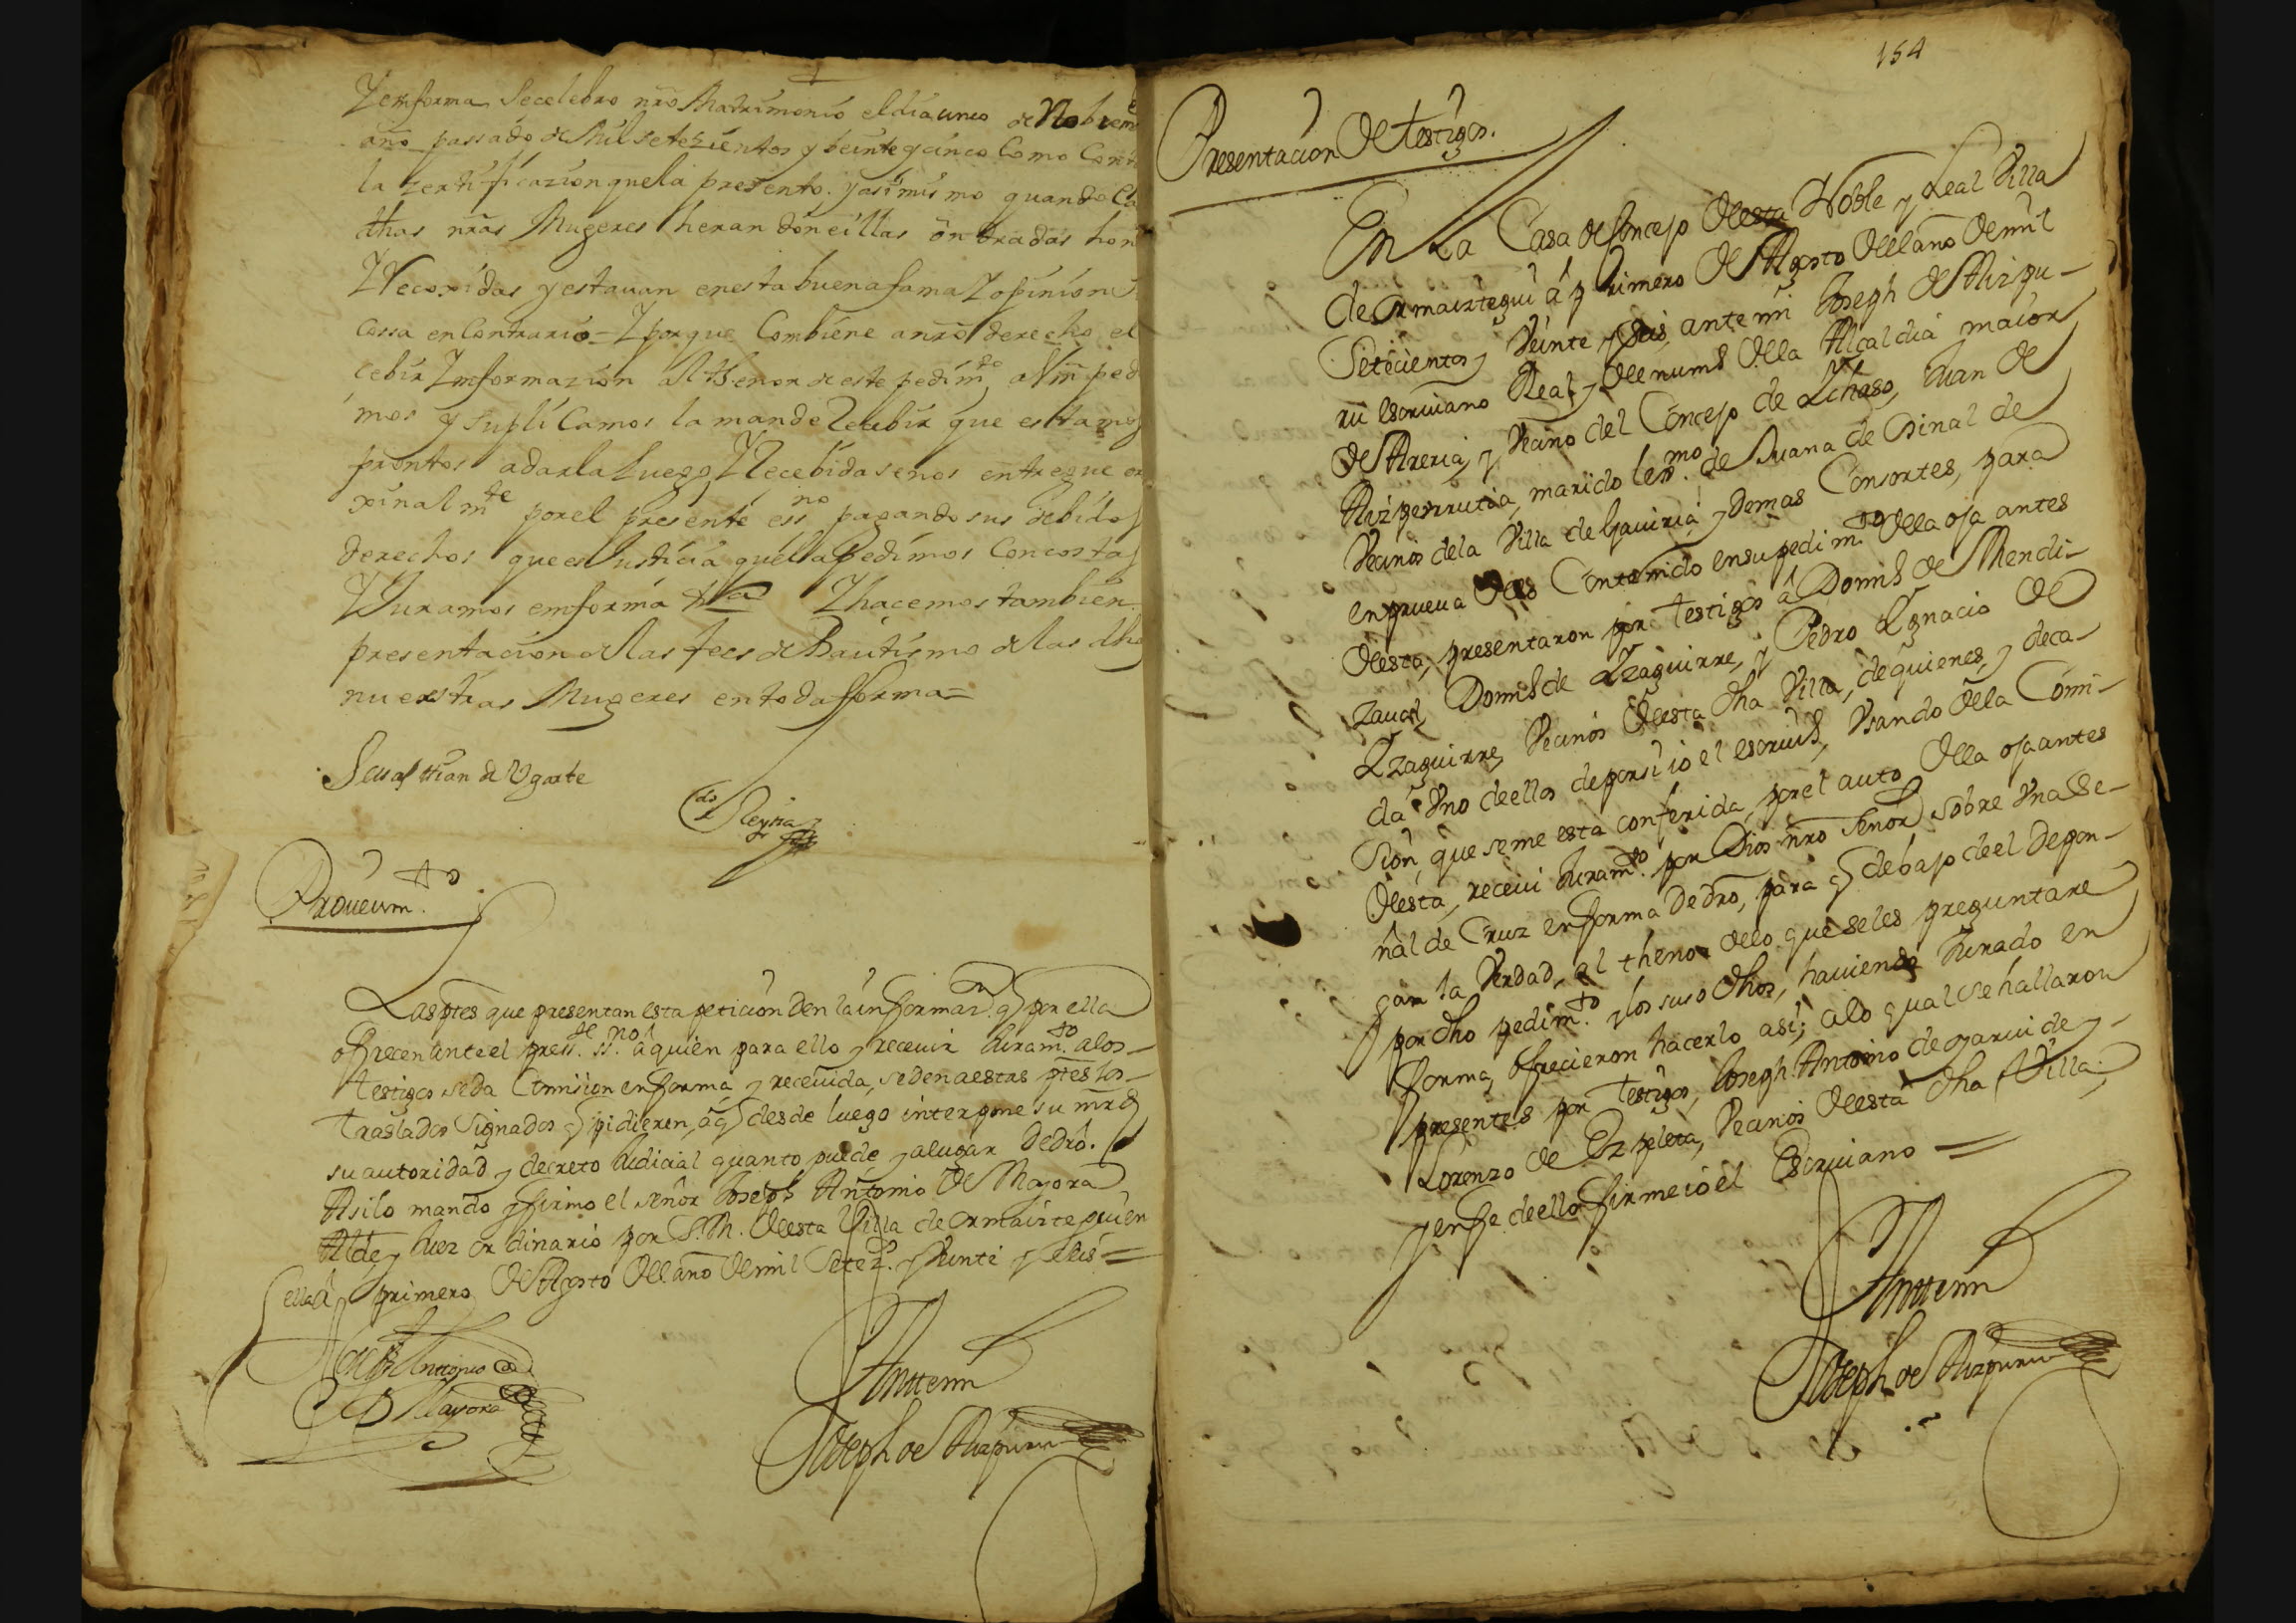 Y emforma Secelebro nrõ Matrimonio el dia unco de Nobrem
año passado de Mil setezientos y beinte y cinco Como Cons
la zertificazion que la presento, y asimismo quando Ca
dhas nrãs Mugeres heran donçillas onrradas hon
Y Recoxidas y estauan en esta buena fama Y opinion
Cossa en Contrario = Y porque Combiene a nrõ derecho el
cebir Ymformazion Al thenor de este pedimto a Vm̃ ped
mos y suplicamos la mande Recebir que estamos
prontos a darla Luego, Y Recebida senos entregue or
xinalmte por el presente essno pagando sus debidos
derechos que es Justicia que la Pedimos Con costas
Y Juramos em forma &ca Y hacemos tambien
presentacion de las fees de Bautismo de las dhã
nuestras Mugeres en toda fforma =
Seuasttian de Vgarte
Cdo Leyza
Proueimto
Las ptes que presentan esta peticion Den la informazn q por ella
ofrecen ante el presste ssno a quien para ello y receuir Juramto a los
testigos se da Comision en forma, y receuida, se den a estas ptes los
traslados Signados q pidieren, a q desde luego interpone su mrd
su autoridad y decreto Judicial quanto puede y a lugar Dedrõ.
Asilo mando y firmo el señor Joseph Antonio de Mayora
Alde y Juez ordinario por S.M. desta Villa de ormaiztegui en
ella a primero de Agosto del año de mil Setez.s y Veinte y seis =
Joseph Anttonio
D Mayora
Antte mi
Joseph de Aizpuru
154
Presentacion de testigos.
En La Casa de Concejo de esta Noble y Leal Villa
de ormaiztegui â primero de Agosto del año de mil
Setecientos y Veinte y seis, ante mi Joseph de Aizpu-
ru escriuano Real y del numo de la Alcaldia maior
de Areria, y Vecino del Concejo de Ychaso, Juan de
Aizpeurrutia, marido lexmo de Juana de Osinal de
Vecinos de la Villa de Gauiria y Demas Consortes, para
en prueua de lo Contenido en su pedimto de la oja antes
desta, presentaron por testigos â Domo de Mendi-
zaual, Domo de Yzaguirre, y Pedro Ygnacio de
Yzaguirre, Vecinos de esta dha Villa, de quienes, y de ca-
da Vno de ellos de por si io el escriuo, Vsando de la Comi-
sion, que se me esta conferida, por el auto de la oja antes
desta, receui Juramto por Dios nrõ señor sobre Vna Se-
ñal de Cruz en forma Dedrõ, para q debajo de el Depon-
gan la Verdad, al thenor de lo que se les preguntare
por dho pedimto y los suso dhos, hauiendo Jurado en
forma, ofrecieron hacerlo asi, a lo qual se hallaron
presentes por testigos, Joseph Antonio de oyarui de y
Lorenzo de Ezpeleta, Vecinos de esta dha Villa
y en fe de ello firme io el Escriuano =
Antte mi
Joseph de Aizpuru